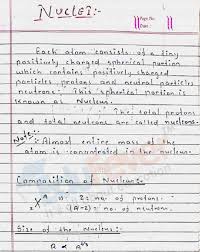 Nuclei:-
Page No.
Date
Each atom consists of a tiny
positively charged spherical portion
which contains positively charged
particles protons and neutral particles
neutrons. This spherical portion is
known as Nucleus.
The total protons
and total neutrons are called nucleons.
Note:- Almost entire mass of the
atom is concentrated in the nucleus.
Composition of Nucleus:-
no. of protons.
(A-Z) = no. of neutron.
Size of the Nucleus:-
R ∝ A